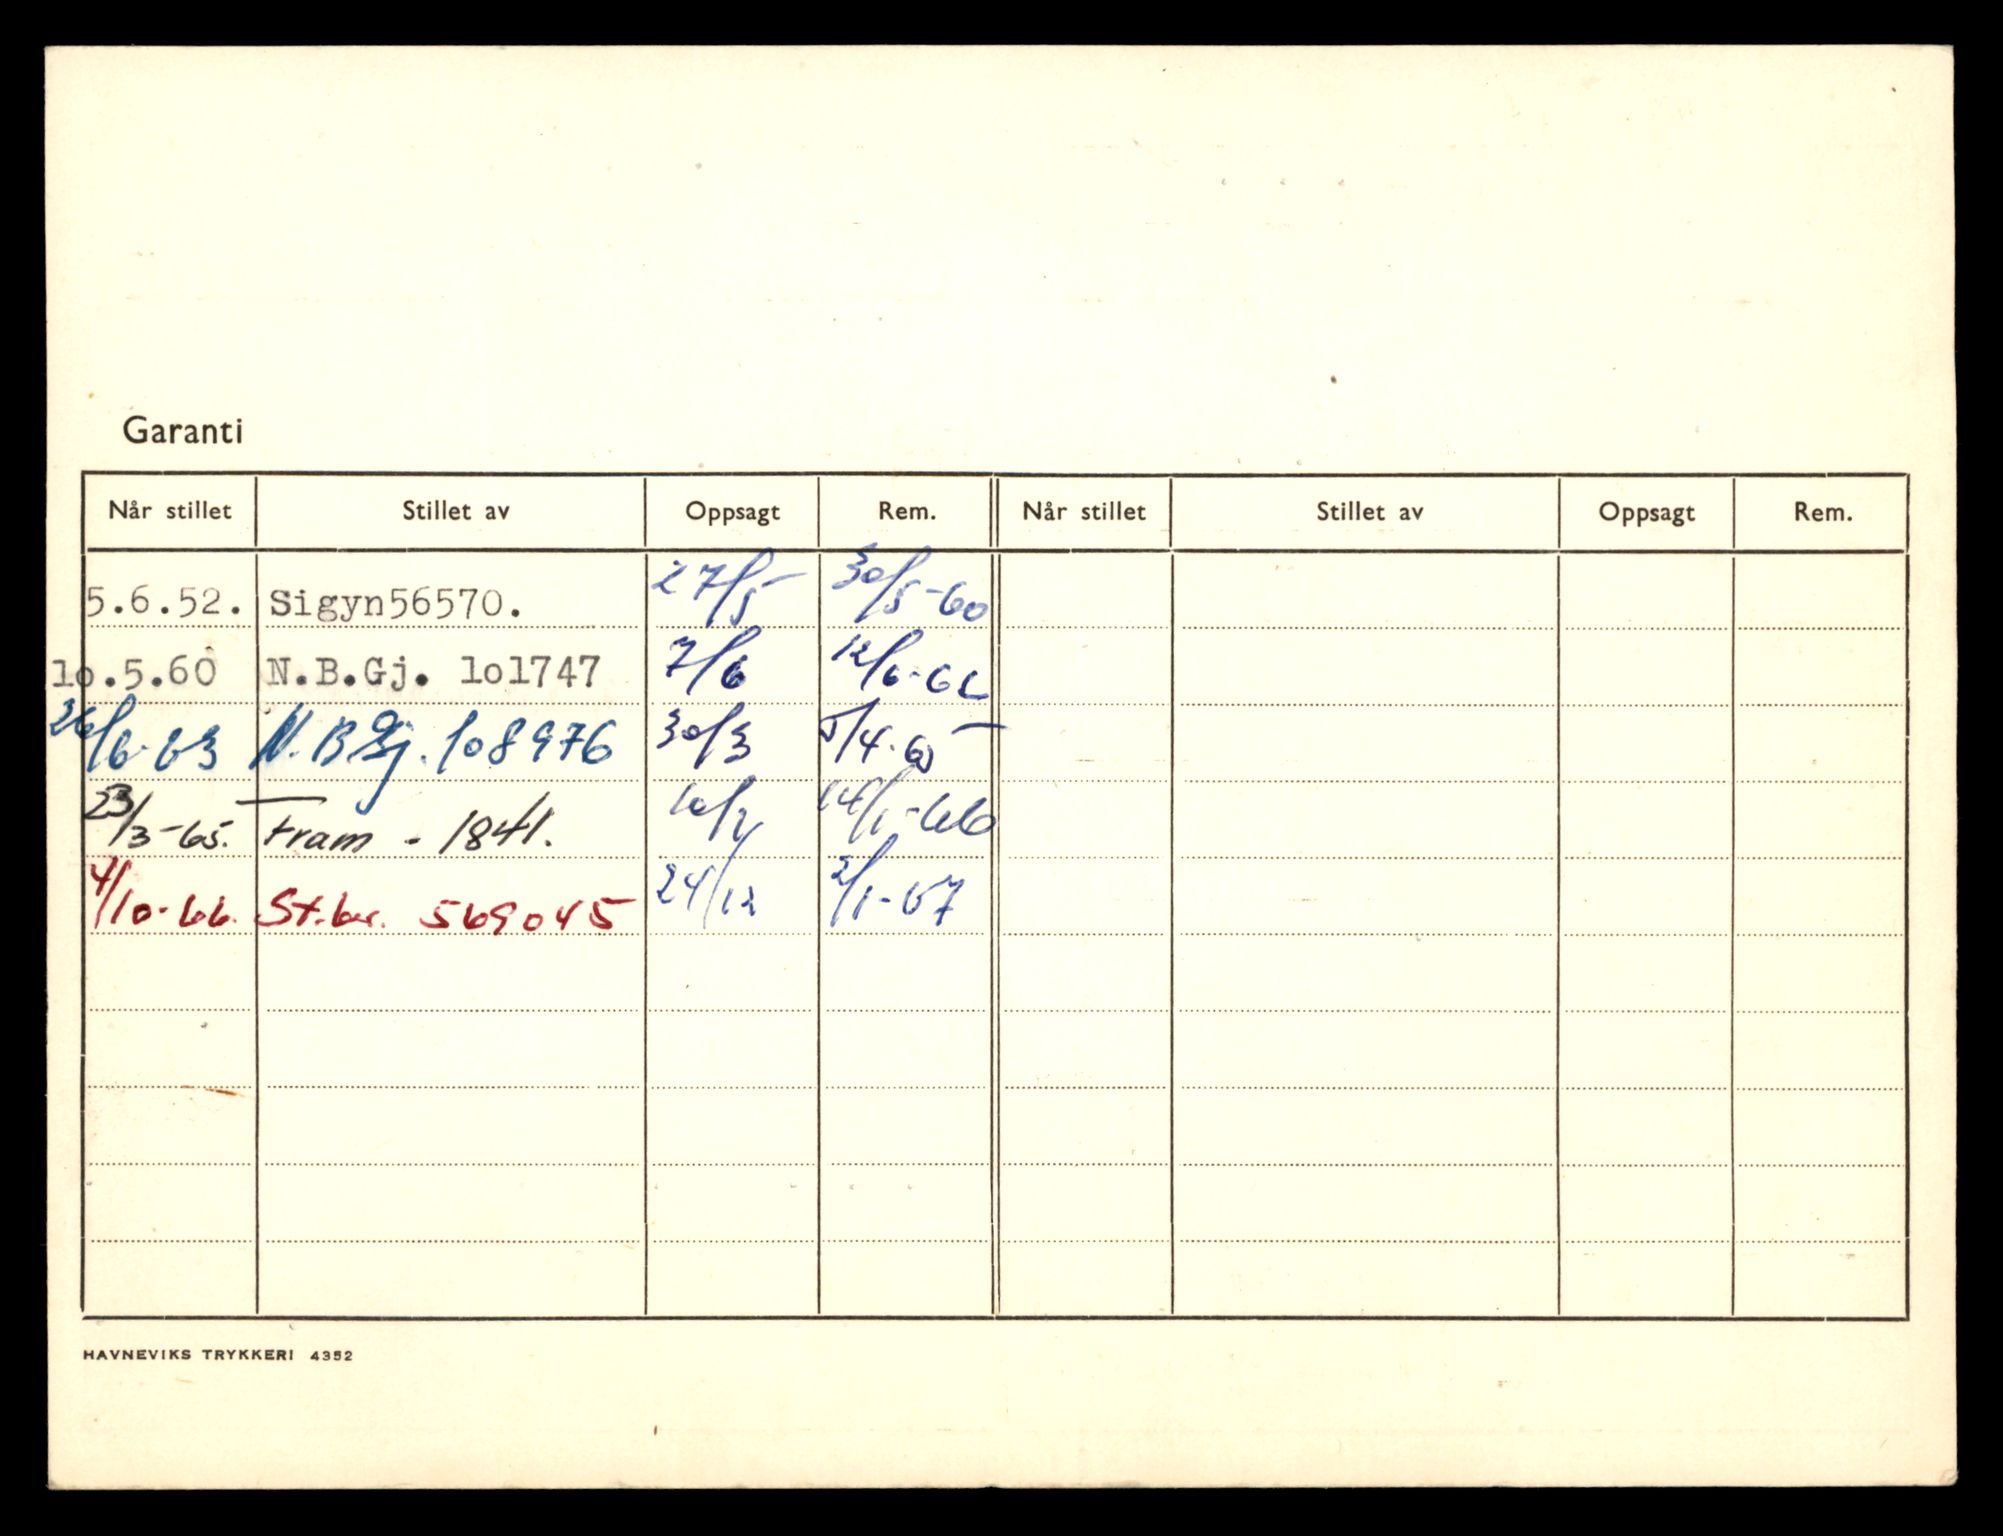 Garanti
Når stillet Stillet av Oppsagt Rem. Når stillet Stillet av Oppsagt Rem.
5.6.52. Sigyn56570. 27/5 30/5-60
lo.5.60 N.B.Gj. lol747 7/6 12/6-62
26/6-63 N.B.Gj. 108976 30/3 5/4-65
23/3-65. Fram - 1841. 10/1 14/1-66
4/10-66. St.br. 569045 24/12 2/1-67
HAVNEVIKS TRYKKERI 4352